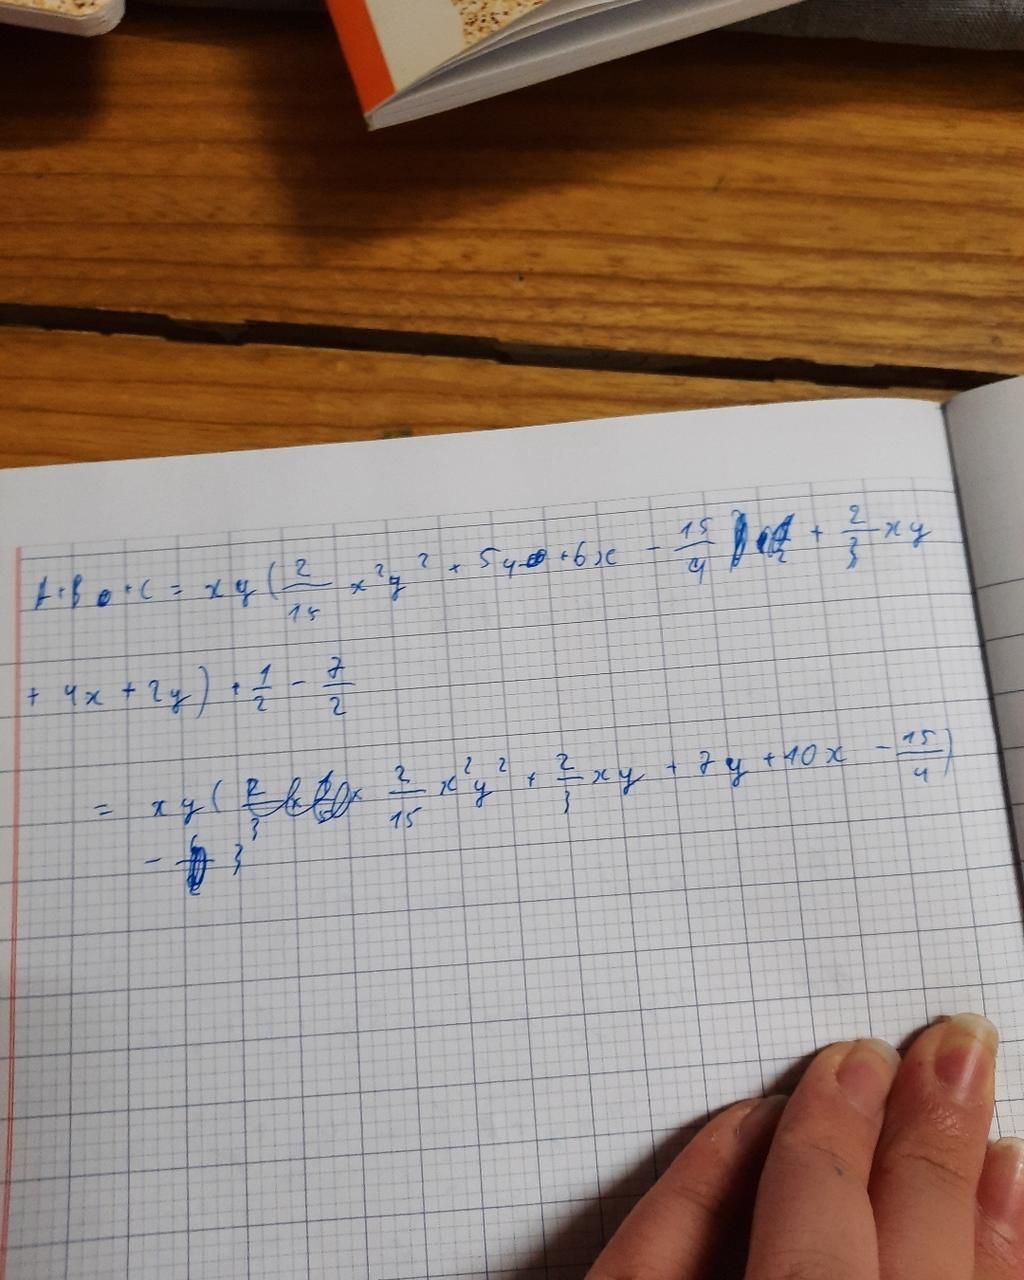 A+B+C = xy(2/15 x²y² + 5y + 6x - 15/4 + 2/3 xy
+ 4x + 2y) + 1/2 - 7/2
= xy( 2/15 x²y² + 2/3 xy + 7y + 10x - 15/4)
- 3